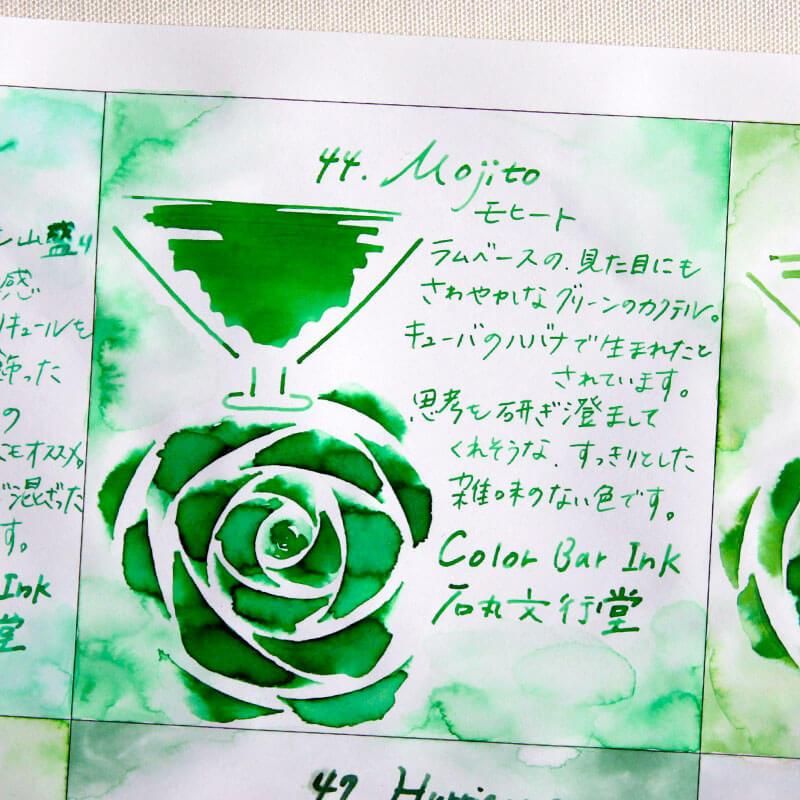 44. Mojito
モヒート
ラムベースの、見た目にも
さわやかなグリーンのカクテル。
キューバのハバナで生まれたと
されています。
思考を研ぎ澄まして
くれそうな、すっきりとした
雑味のない色です。
Color Bar Ink
石丸文行堂
山盛り
感
リキュールを
飾った
の
もオススメ。
混ざった
す。
Ink
堂
47